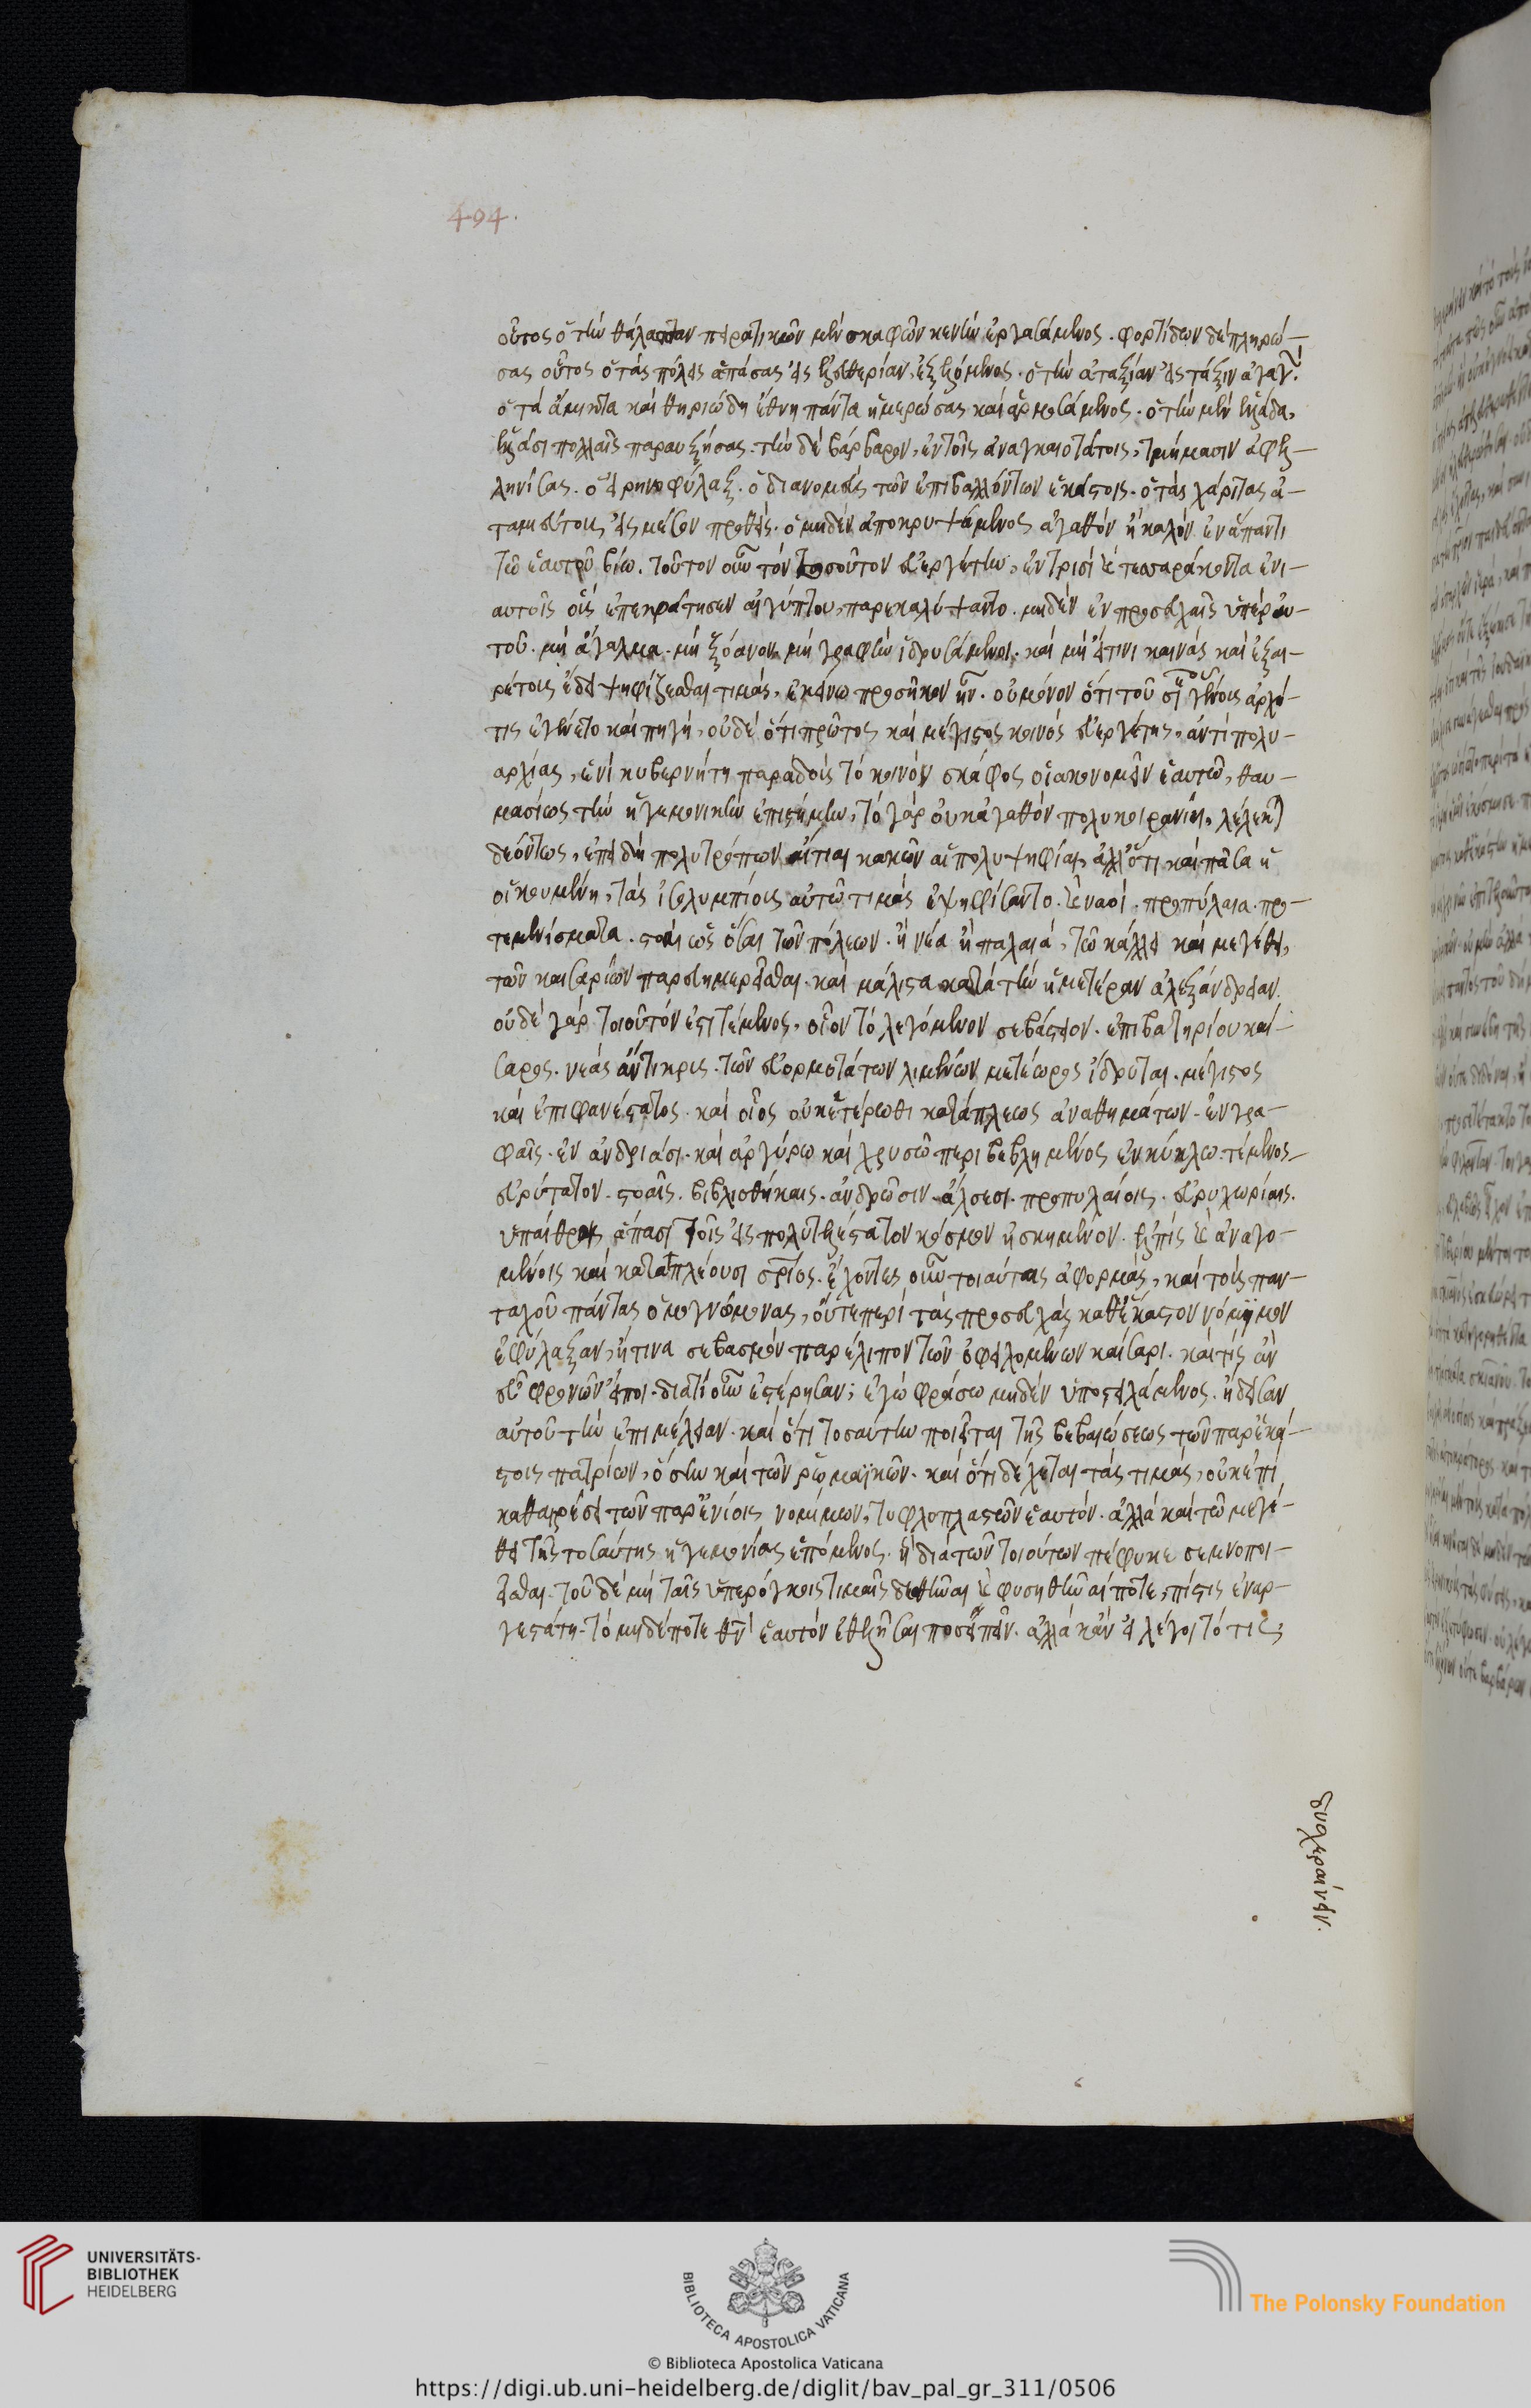 494.
οὗτος ὁ τὴν θάλατταν πειρατικῶν μὲν σκαφῶν κενὴν ἐργασάμενος. φορτίδων δὲ πληρώ-
σας οὗτος ὁ τὰς πόλεις ἁπάσας εἰς ἐλευθερίαν ἐξελόμενος. ὁ τὴν ἀταξίαν εἰς τάξιν ἀγαγών.
ὁ τὰ ἄμικτα καὶ θηριώδη ἔθνη πάντα ἡμερώσας καὶ ἁρμοσάμενος. ὁ τὴν μὲν ἑλλάδα,
ἑλλάσι πολλαῖς παραυξήσας. τὴν δὲ βάρβαρον, ἐν τοῖς ἀναγκαιοτάτοις, τμήμασιν ἀφελ-
ληνίσας. ὁ εἰρηνοφύλαξ. ὁ διανομεὺς τῶν ἐπιβαλλόντων ἑκάστοις. ὁ τὰς χάριτας ἀ-
ταμιεύτους εἰς μέσον προθείς. ὁ μηδὲν ἀποκρυψάμενος ἀγαθὸν ἢ καλὸν ἐν ἅπαντι
τῷ ἑαυτοῦ βίῳ. τοῦτον οὖν τὸν τοσοῦτον εὐεργέτην, ἐν τρισὶ καὶ τεσσαράκοντα ἐνι-
αυτοῖς οἷς ἐπεκράτησεν αἰγύπτου, παρεκαλύψαντο. μηδὲν ἐν προσευχαῖς ὑπὲρ αὐ-
τοῦ. μὴ ἄγαλμα. μὴ ξόανον μὴ γραφὴν ἱδρυσάμενοι. καὶ μὴ εἴ τινι καινὰς καὶ ἐξαι-
ρέτοις ἔδει ψηφίζεσθαι τιμάς, ἐκείνῳ προσῆκον ἦν. οὐ μόνον ὅτι τοῦ σεβαστοῦ γένους ἀρχή
τις ἐγένετο καὶ πηγή, οὐδὲ ὅτι πρῶτος καὶ μέγιστος κοινὸς εὐεργέτης, ἀντὶ πολυ-
αρχίας, ἑνὶ κυβερνήτῃ παραδοὺς τὸ κοινὸν σκάφος οἰακονομεῖν ἑαυτῷ, θαυ-
μασίως τὴν ἡγεμονικὴν ἐπιστήμην, τὸ γὰρ οὐκ ἀγαθὸν πολυκοιρανίη, λέλεκται
δεόντως, ἐπειδὴ πολυτρόπων αἴτιαι κακῶν αἱ πολυψηφίαι, ἀλλ' ὅτι καὶ πᾶσα ἡ
οἰκουμένη, τὰς ἰσολυμπίους αὐτῷ τιμὰς ἐψηφίσαντο. καὶ ναοί, προπύλαια. προ-
τεμενίσματα. στοαὶ ὡς ὅσαι τῶν πόλεων. ἢ νέα ἢ παλαιά, τῷ κάλλει καὶ μεγέθει,
τῶν καισαρείων παρευημερεῖσθαι. καὶ μάλιστα κατὰ τὴν ἡμετέραν ἀλεξάνδρειαν.
οὐδὲ γὰρ τοιοῦτόν ἐστι τέμενος, οἷον τὸ λεγόμενον σεβαστεῖον. ἐπιβατηρίου καί-
σαρος. νεὼς ἄντικρις. τῶν εὐορμοτάτων λιμένων μετέωρος ἵδρυται. μέγιστος
καὶ ἐπιφανέστατος. καὶ οἷος οὐκ ἑτέρωθι κατάπλεως ἀναθημάτων. ἐν γρα-
φαῖς. ἐν ἀνδριάσι. καὶ ἀργύρῳ καὶ χρυσῷ περιβεβλημένος ἐν κύκλῳ. τέμενος
εὐρύτατον. στοαῖς. βιβλιοθήκαις. ἀνδρῶσιν. ἄλσεσι. προπυλαίοις. εὐρυχωρίαις.
ὑπαίθροις ἅπασι τοῖς εἰς πολυτελέστατον κόσμον ἠσκημένον. ἐλπὶς καὶ ἀναγο-
μένοις καὶ καταπλέουσι σωτήριος. ἔχοντες οὖν τοιαύτας ἀφορμάς, καὶ τοὺς παν-
ταχοῦ πάντας ὁμογνώμονας, οὔτε περὶ τὰς προσευχὰς καθ' ἕκαστον νόμιμον
ἐφύλαξαν, ἤ τινα σεβασμὸν παρέλιπον τῶν ὀφειλομένων καίσαρι. καὶ τίς ἂν
εὖ φρονῶν εἴποι. διατί οὖν ἐστέρησαν; ἐγὼ φράσω μηδὲν ὑποστειλάμενος. ᾔδεισαν
αὐτοῦ τὴν ἐπιμέλειαν. καὶ ὅτι τοσαύτην ποιεῖται τῆς βεβαιώσεως τῶν παρ' ἑκά-
στοις πατρίων, ὅσην καὶ τῶν ῥωμαϊκῶν. καὶ ὅτι δέχεται τὰς τιμάς, οὐκ ἐπὶ
καθαιρέσει τῶν παρ' ἐνίοις νομίμων, τυφλοπλαστῶν ἑαυτόν. ἀλλὰ καὶ τῷ μεγέ-
θει τῆς τοσαύτης ἡγεμονίας ἑπόμενος. ἢ διὰ τῶν τοιούτων πέφυκε σεμνοποι-
εῖσθαι. τοῦ δὲ μὴ ταῖς ὑπερόγκοις τιμαῖς δεθῆναι καὶ φυσηθῆναί ποτε, πίστις ἐναρ-
γεστάτη. τὸ μηδέποτε θεὸν ἑαυτὸν ἐθελῆσαι προσειπεῖν. ἀλλὰ κἂν εἰ λέγοι τό τις,
δυσχεραίνειν.
UNIVERSITÄTS-
BIBLIOTHEK
HEIDELBERG
BIBLIOTECA APOSTOLICA VATICANA
The Polonsky Foundation
© Biblioteca Apostolica Vaticana
https://digi.ub.uni-heidelberg.de/diglit/bav_pal_gr_311/0506